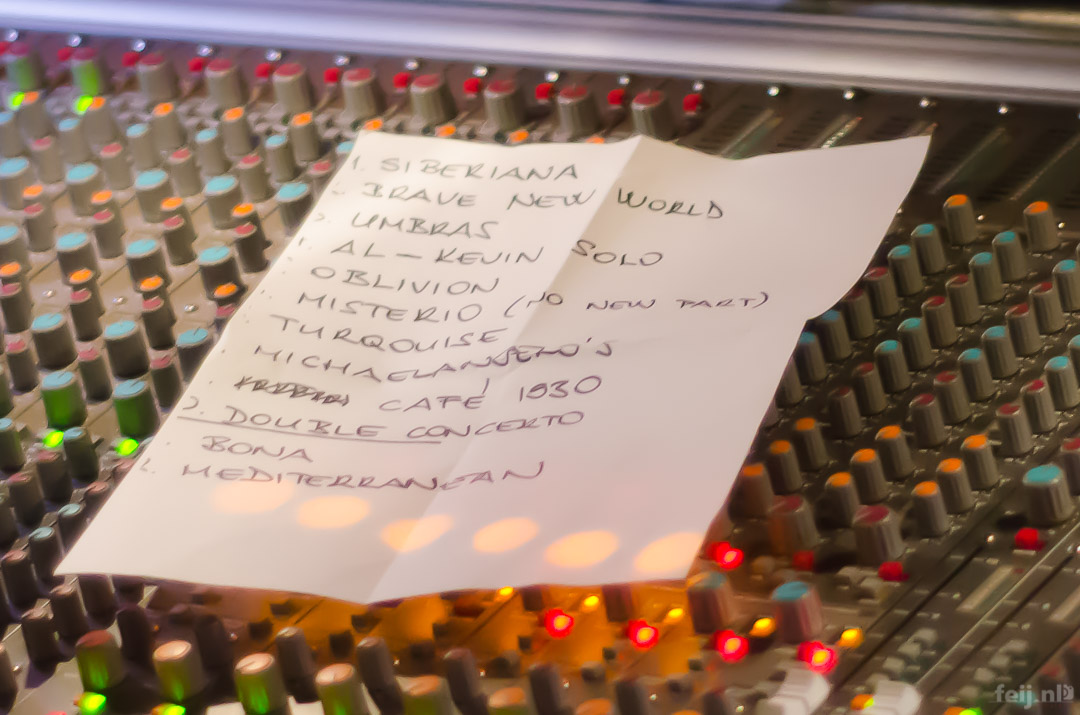 1. SIBERIANA
BRAVE NEW WORLD
UMBRAS
AL – KEVIN SOLO
OBLIVION
MISTERIO (NO NEW PART)
TURQOUISE
MICHAELANGELO'S
CAFÉ 1930
DOUBLE CONCERTO
BONA
MEDITERRANEAN
feij.nl